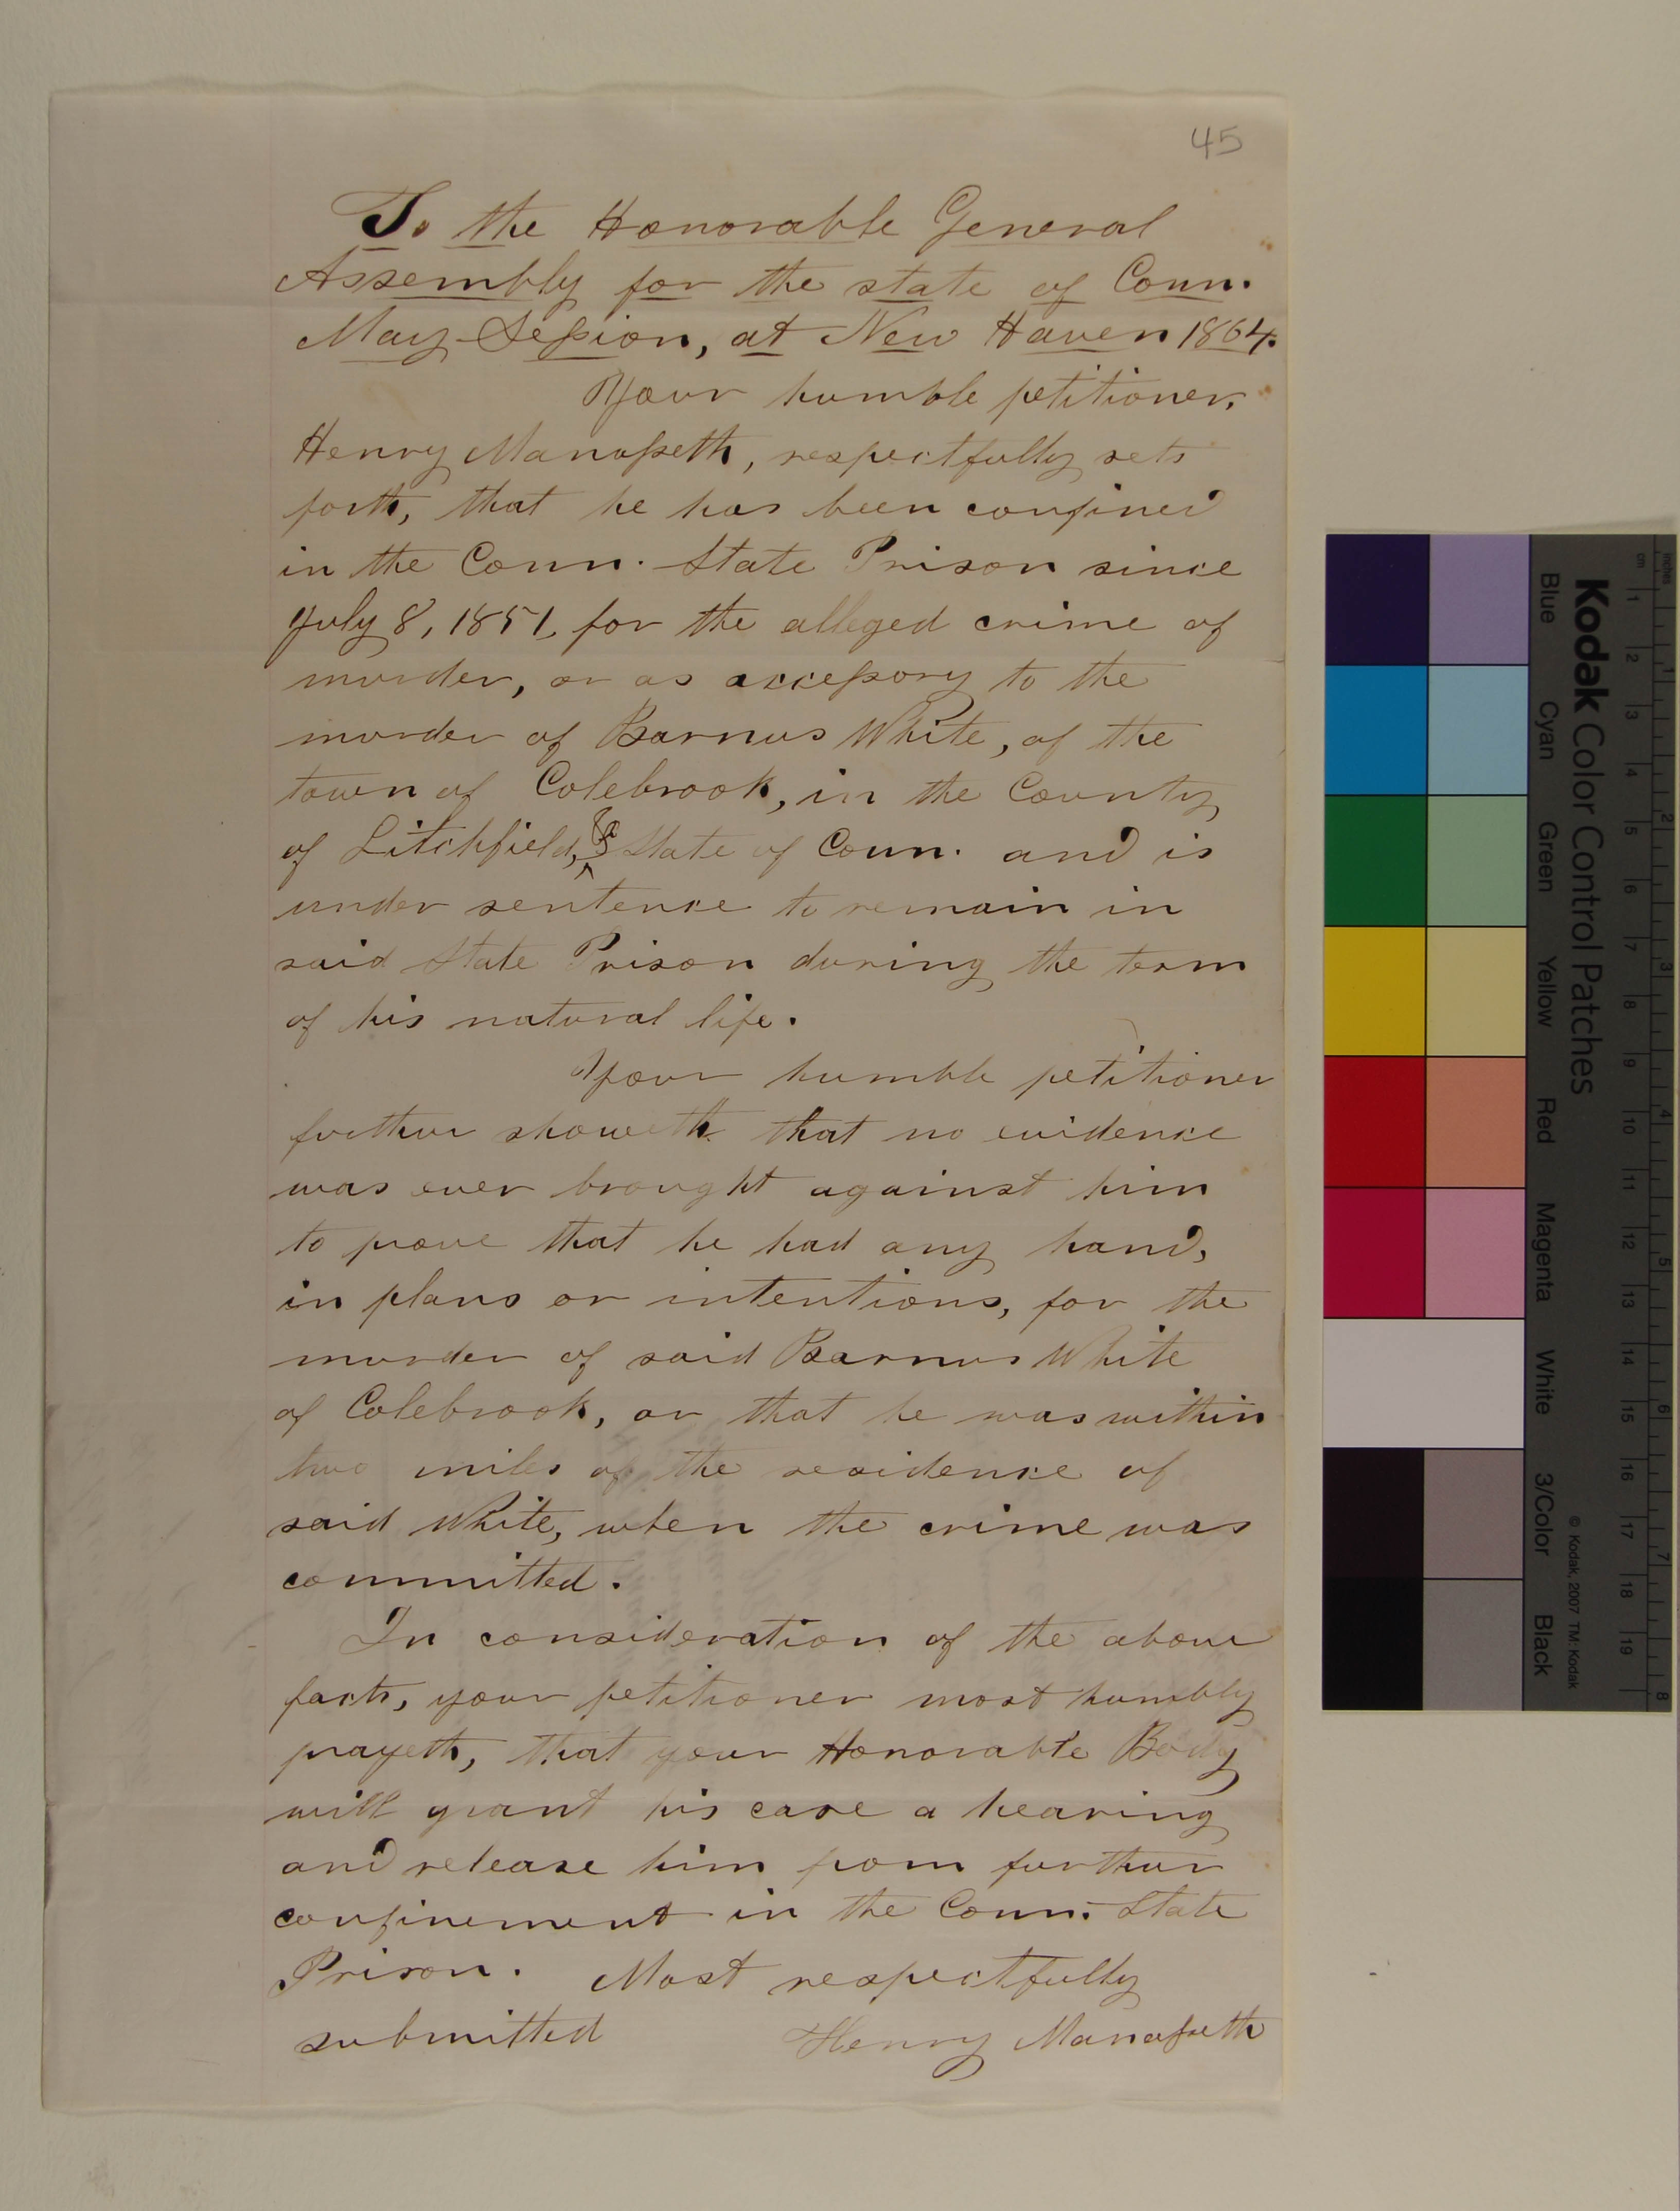 45
To the Honorable General
Assembly for the state of Conn.
May Session, at New Haven 1864.
Your humble petitioner,
Henry Manasseth, respectfully sets
forth, that he has been confined
in the Conn. State Prison since
July 8, 1851, for the alleged crime of
murder, or as accessory to the
murder of Barnus White, of the
town of Colebrook, in the County
of Litchfield, & State of Conn. and is
under sentence to remain in
said State Prison during the term
of his natural life.
Your humble petitioner
further showeth that no evidence
was ever brought against him
to prove that he had any hand,
in plans or intentions, for the
murder of said Barnus White
of Colebrook, or that he was within
two miles of the residence of
said White, when the crime was
committed.
In consideration of the above
facts, your petitioner most humbly
prayeth, that your Honorable Body
will grant his case a hearing
and release him from further
confinement in the Conn. State
Prison. Most respectfully
submitted Henry Manasseth
Kodak Color Control Patches
Blue Cyan Green Yellow Red Magenta White 3/Color Black
© Kodak, 2007 TM: Kodak
inches 1 2 3 4 5 6 7 8
cm 1 2 3 4 5 6 7 8 9 10 11 12 13 14 15 16 17 18 19